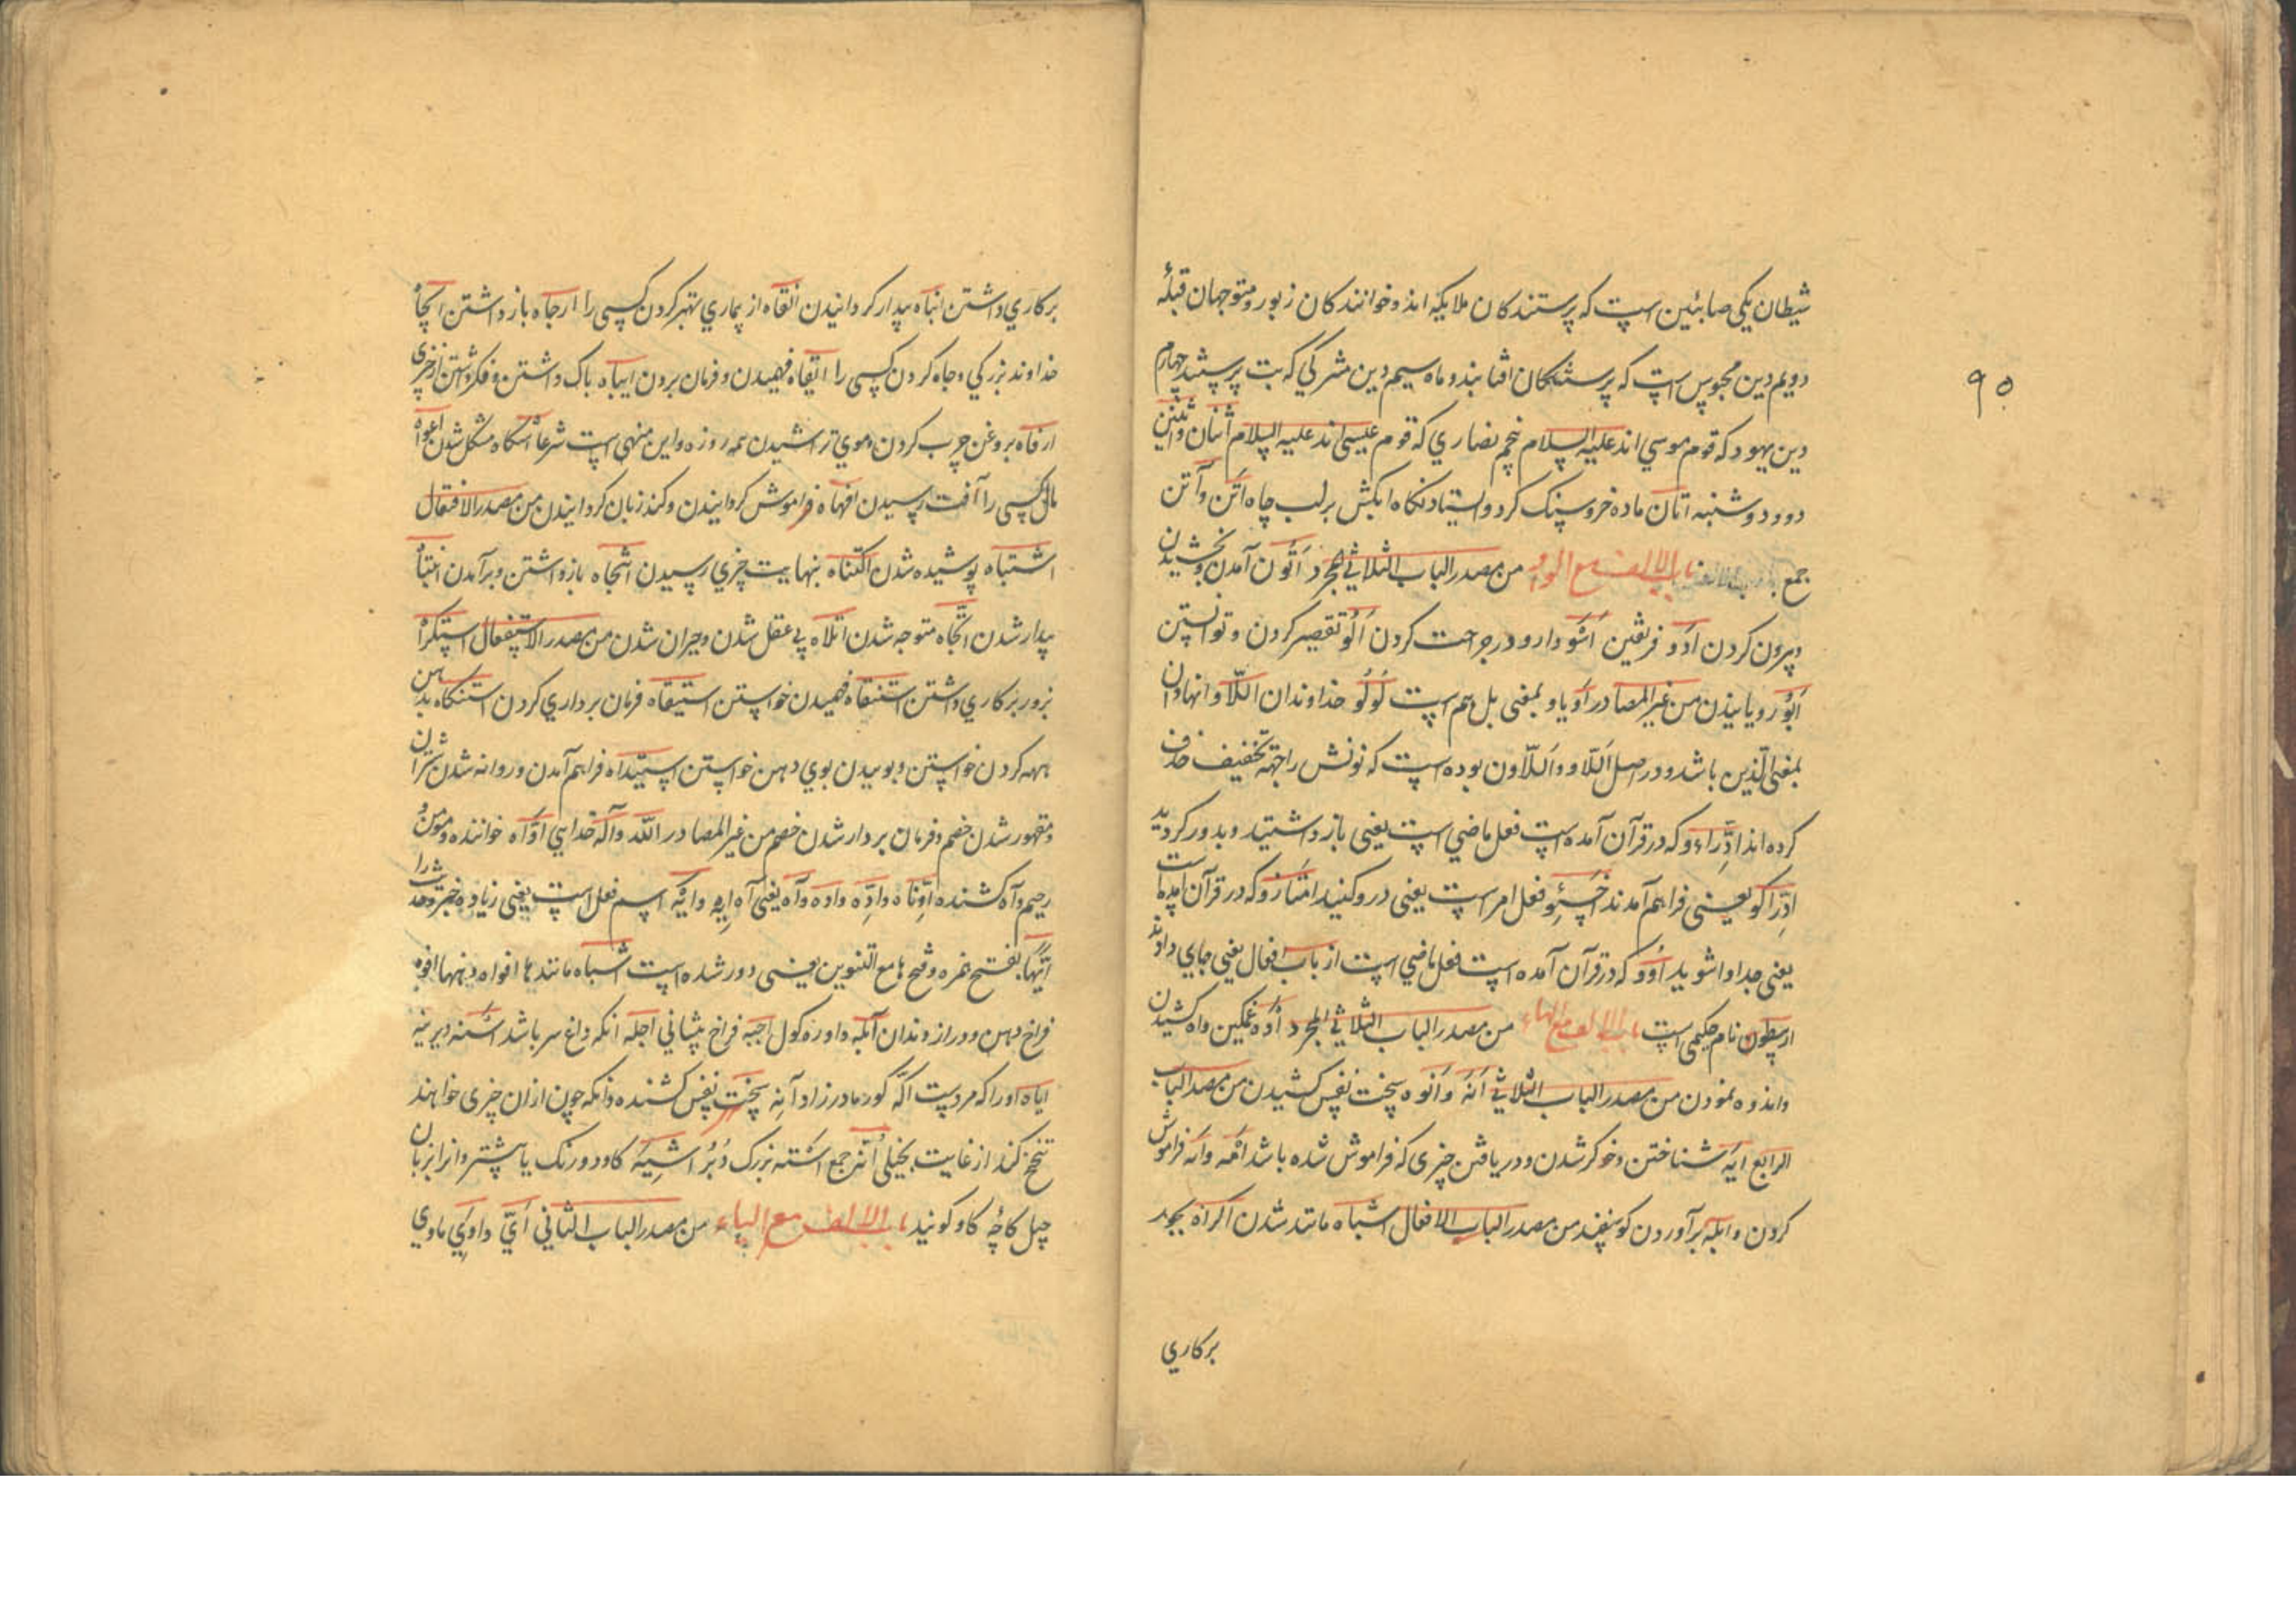 شیطان یکی صابئین است که پرستندکان ملایکه اند و خوانندکان زبور و متوجهان قبله
دویم دین مجوس است که پرستندکان افتابند و ماه سیم دین مشرکی که بت پرستند چهارم
دین یهود که قوم موسی اند علیه السلام پنجم نصاری که قوم عیسی اند علیه السلام اثنان واثنین
دو و دوشنبه اتان ماده خر و سنک کرد و ایستادنکاه ابکش بر لب چاه اتن وآتن
جمع باب الالف مع الواو من مصدر الباب الثلاثی المجرد اتون آمدن بخشیدن
وبیرون کردن ادو فریفتن اسو دارو در جراحت کردن الو تقصیر کردن و توانستن
ابو رویانیدن من غیر المصادر او یا و بمعنی بل هم است لولو خداوندان اللاو انهاوان
بمعنی الذین باشد و در اصل اللاو و اللاون بوده است که نونش را بجهته تخفیف حذف
کرده اند ادراءو که در قرآن آمده است فعل ماضی است یعنی باز داشتید و بدور کردید
ادراکو یعنی فراهم آمدند اخسئو فعل امر است یعنی درو کنید امتازو که در قرآن آمده است
یعنی جدا وا شوید اوو که در قرآن آمده است فعل ماضی است از باب افعال یعنی جای دادند
ارسطون نام حکیمی است باب الالف مع الهاء من مصدر الباب الثلاثی المجرد اوه غمکین واه کشیدن
واندوه نمودن من مصدر الباب الثلاثی انه وانوه سخت نفس کشیدن من مصدر الباب
الرابع ابه شناختن و خوکر شدن و دریافتن چیزی که فراموش شده باشد امه وانه فراموش
کردن و ابله برآوردن کوسفند من مصدر الباب الافعال اشباه مانند شدن اکراه بجد
برکاری
۹۵
برکاری داشتن انباه بیدار کردانیدن انقاه از بیماری بهتر کردن کسی را ارجاه باز داشتن ایجاه
خداوند بزرکی و جاه کردن کسی را اتقاه فهمیدن و فرمان بردن ایباه باک داشتن و فکر داشتن از چیزی
ارفاه بروغن چرب کردن وموی تراشیدن همه روزه واین منهی است شرعا اشکاه مشکل شدن اعواه
مال کسی را آفت رسیدن افهاه فراموش کردانیدن وکند زبان کردانیدن من مصدر الافتعال
اشتباه پوشیده شدن اکتناه بنهایت چیزی رسیدن اتجاه باز داشتن و برآمدن انتباه
بیدار شدن اتجاه متوجه شدن اتلاه بی عقل شدن وحیران شدن من مصدر الاستفعال استکراه
بزور بر کاری داشتن استنقاه فهمیدن خواستن استیقاه فرمان برداری کردن استنکاه بدهن
هه کردن خواستن و بوییدن بوی دهن خواستن استیداه فراهم آمدن و روانه شدن شتران
ومقهور شدن خصم و فرمان بردار شدن خصم من غیر المصادر الله وآله خدای اواه خواننده ومومن
رحیم وآه کشنده اوتاه واده واده وآه یعنی آه ایه وایه اسم فعل است یعنی زیاده خبر وحدیث را
ایها بفتح همزه و فتح ها مع التنوین یعنی دور شده است اشباه مانند ها افواه دهنها افوه
فراخ دهن و دراز دندان آبله داوره کول اجبه فراخ پیشانی اجله انکه داغ سر باشد اسنه دیرینه
ایاه اورا که مردست اکمه کور مادرزاد آنه سخت نفس کشنده وانکه چون از آن چیزی خواهند
تنحنح کند از غایت بخیلی انه جمع استه بزرک دبر اشیه کاو دو رنک یا بیشتر و انرا بزبان
چپل کاچه کاو کویند باب الالف مع الیاء من مصدر الباب الثانی ای واوی ماوی